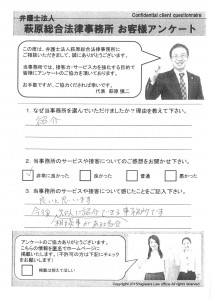 弁護士法人
Confidential client questionnaire
萩原総合法律事務所 お客様アンケート
この度は、弁護士法人萩原総合法律事務所に
ご相談いただきまして、誠にありがとうございます。
当事務所では、接客力・サービス力を強化する目的で
皆様にアンケートのご協力を頂いております。
お手数ですが、ご協力くだされば幸いです。
代表 萩原 慎二
1. なぜ当事務所を選んでいただけましたか？理由を教えて下さい。
紹介
2. 当事務所のサービスや接客についてのご感想をお聞かせ下さい。
非常に良かった 良かった 普通 悪かった
3. 当事務所のサービスや接客について感じたことをご記入下さい。
良いと思います
今後、友人に紹介できる事務所です
アンケートのご協力ありがとうございます。
こちらの情報を匿名でホームページに
掲載いたします。(不許可の方は下記にチェックを
お願いします)
掲載は控えてほしい
Copyright 2015 Hagiwara Law office All rights reserved.